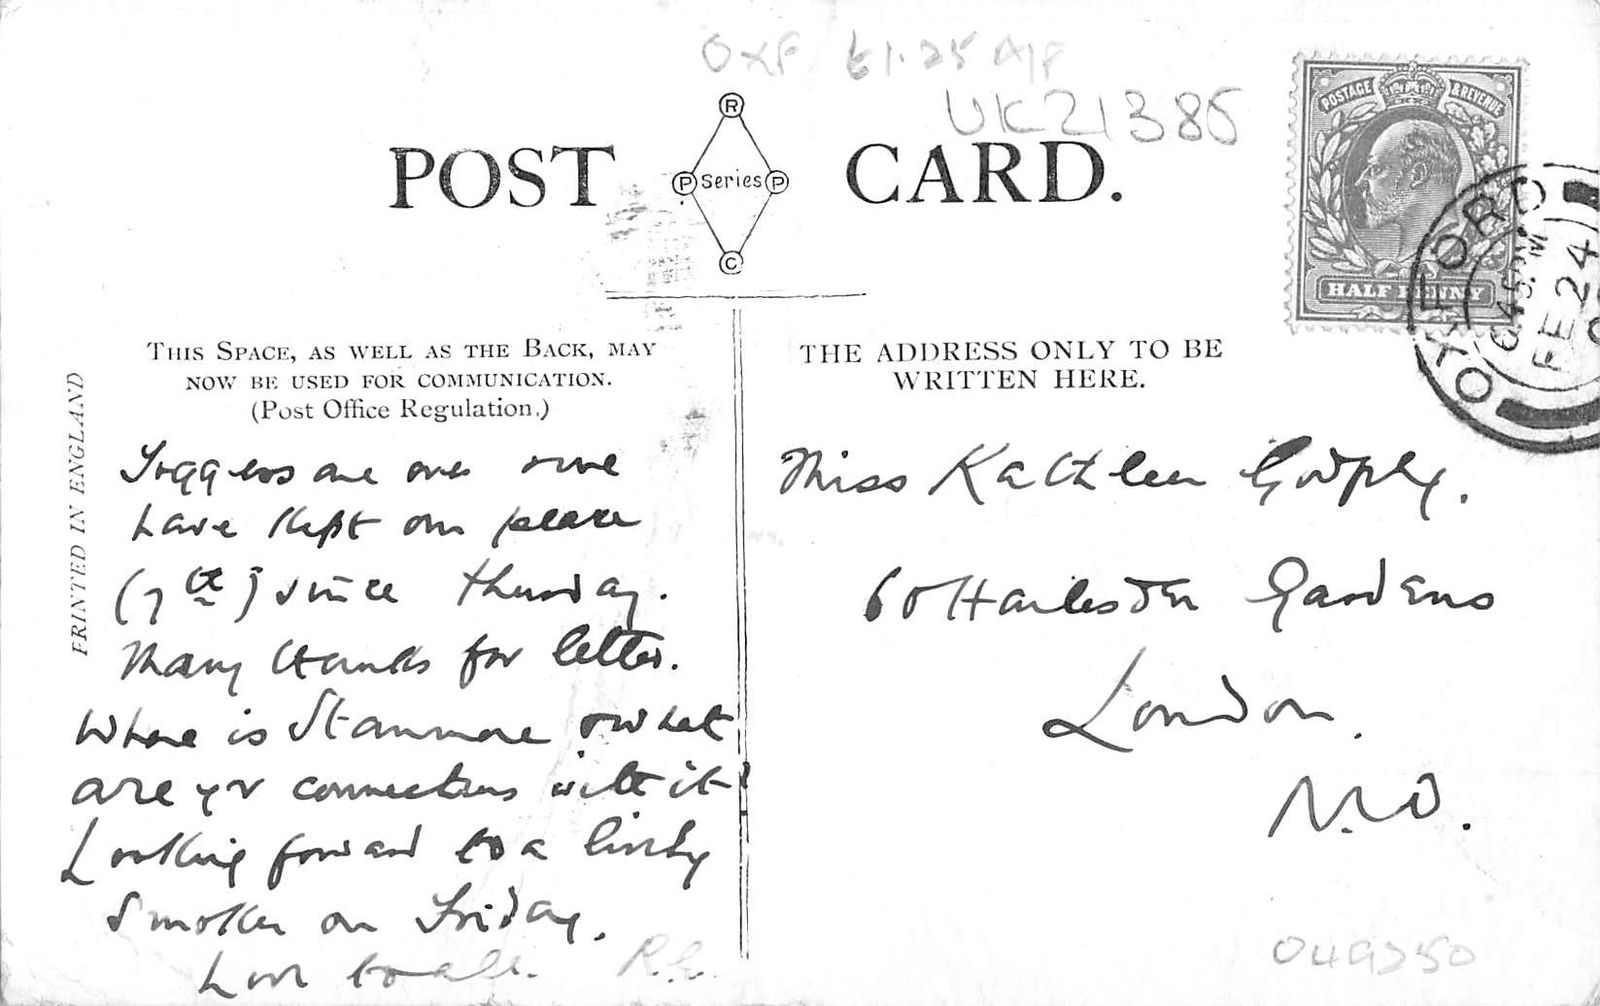 OXF £1.25 A/F
UK21385
POST CARD.
R
P Series P
C
POSTAGE & REVENUE
HALF PENNY
OXFORD
6.45 PM
FE 24
THIS SPACE, AS WELL AS THE BACK, MAY
NOW BE USED FOR COMMUNICATION.
(Post Office Regulation.)
PRINTED IN ENGLAND
Toggers are over & we
have kept our place
(7th) since Thursday.
Many thanks for letter.
Where is Stanmore & what
are yr connections with it?
Looking forward to a
Smoker on Friday.
Love to all. R.
THE ADDRESS ONLY TO BE
WRITTEN HERE.
Miss Kathleen Godfrey.
60 Harlesden Gardens
London.
N.W.
049250